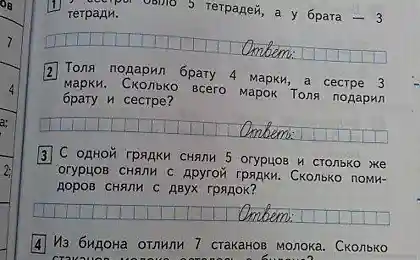 1 У сестры было 5 тетрадей, а у брата — 3
тетради.
Ответ:
2 Толя подарил брату 4 марки, а сестре 3
марки. Сколько всего марок Толя подарил
брату и сестре?
Ответ:
3 С одной грядки сняли 5 огурцов и столько же
огурцов сняли с другой грядки. Сколько поми-
доров сняли с двух грядок?
Ответ:
4 Из бидона отлили 7 стаканов молока. Сколько
стаканов молока осталось в бидоне?
ов
7
4
а:
2;